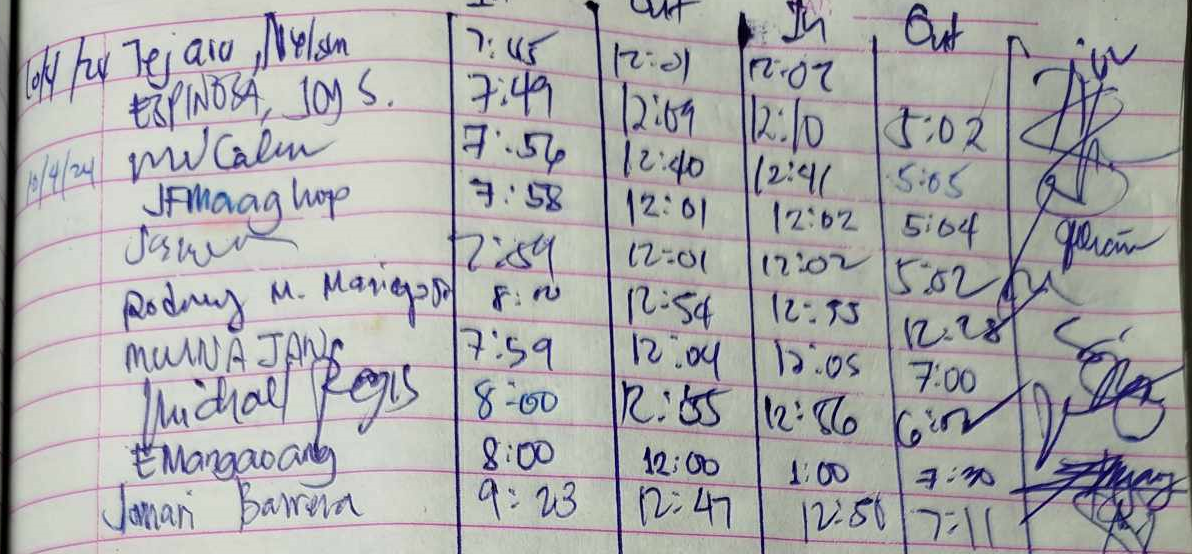 In Out In Out
10/4/24 Tejano, Nelson 7:45 12:01 12:02
ESPINOSA, JOY S. 7:49 12:09 12:10 5:02
10/4/24 7:56 12:40 12:41 5:05
JFMaaghop 7:58 12:01 12:02 5:04
7:59 12:01 12:02 5:02
Rodney M. 8:00 12:54 12:55 12:28
JANE 7:59 12:04 12:05 7:00
Michael Regis 8:00 12:55 12:56 6:02
EMangaoang 8:00 12:00 1:00 7:30
Jomari Barrera 9:23 12:47 12:50 7:11